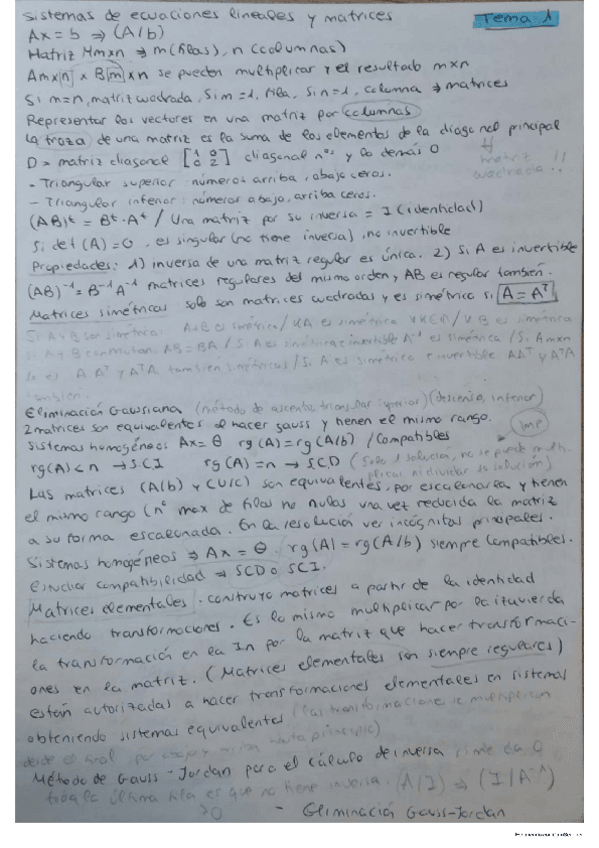 Sistemas de ecuaciones lineales y matrices
Tema 1
Ax = b ⇒ (A/b)
Matriz Mmxn ⇒ m (filas), n (columnas)
Amx[n] x B[m]xn se pueden multiplicar y el resultado mxn
Si m=n, matriz cuadrada, Si m=1, fila, Si n=1, columna → matrices
Representar los vectores en una matriz por columnas
La traza de una matriz es la suma de los elementos de la diagonal principal
D = matriz diagonal [1 0 0 2] diagonal nºs y lo demás 0
matriz cuadrada !!
- Triangular superior números arriba, abajo ceros.
- Triangular inferior: números abajo, arriba ceros.
(AB)ᵗ = Bᵗ·Aᵗ / Una matriz por su inversa = I (identidad)
Si det (A) = 0, es singular (no tiene inversa), no invertible
Propiedades: 1) inversa de una matriz regular es única. 2) Si A es invertible
(AB)⁻¹ = B⁻¹A⁻¹ matrices regulares del mismo orden y AB es regular también.
Matrices simétricas solo son matrices cuadradas y es simétrica si A = Aᵀ
Si A y B son simétricas A+B es simétrica / KA es simétrica
Si A y B conmutan AB = BA / Si A es simétrica e invertible A⁻¹ es simétrica / Si Amxn
AAᵀ y AᵀA también simétricas / Si A es simétrica e invertible AAᵀ y AᵀA
también.
Eliminación Gaussiana (método de ascenso, triangular superior) (descenso, inferior)
2 matrices son equivalentes al hacer gauss y tienen el mismo rango.
Imp
Sistemas homogéneos Ax = Θ rg(A) = rg(A/b) / Compatibles
rg(A) < n → SCI rg(A) = n → SCD (Solo 1 solución, no se puede multiplicar ni dividir su solución)
Las matrices (A/b) y C(U/c) son equivalentes, por escalonarla y tienen
el mismo rango (nº max de filas no nulas una vez reducida la matriz
a su forma escalonada. En la resolución ver incógnitas principales.
Sistemas homogéneos ⇒ Ax = Θ. rg(A) = rg(A/b) siempre compatibles.
Estudiar compatibilidad ⇒ SCD o SCI.
Matrices elementales. construyo matrices a partir de la identidad
haciendo transformaciones. Es lo mismo multiplicar por la izquierda
la transformación en la In por la matriz que hacer transformaci-
ones en la matriz. (Matrices elementales son siempre regulares)
están autorizadas a hacer transformaciones elementales en sistemas
obteniendo sistemas equivalentes (las transformaciones se multiplican
desde el final, por abajo principio)
Método de Gauss-Jordan para el cálculo de inversa si me da 0
toda la última fila es que no tiene inversa. (A/I) ⇒ (I/A⁻¹)
- Eliminación Gauss-Jordan